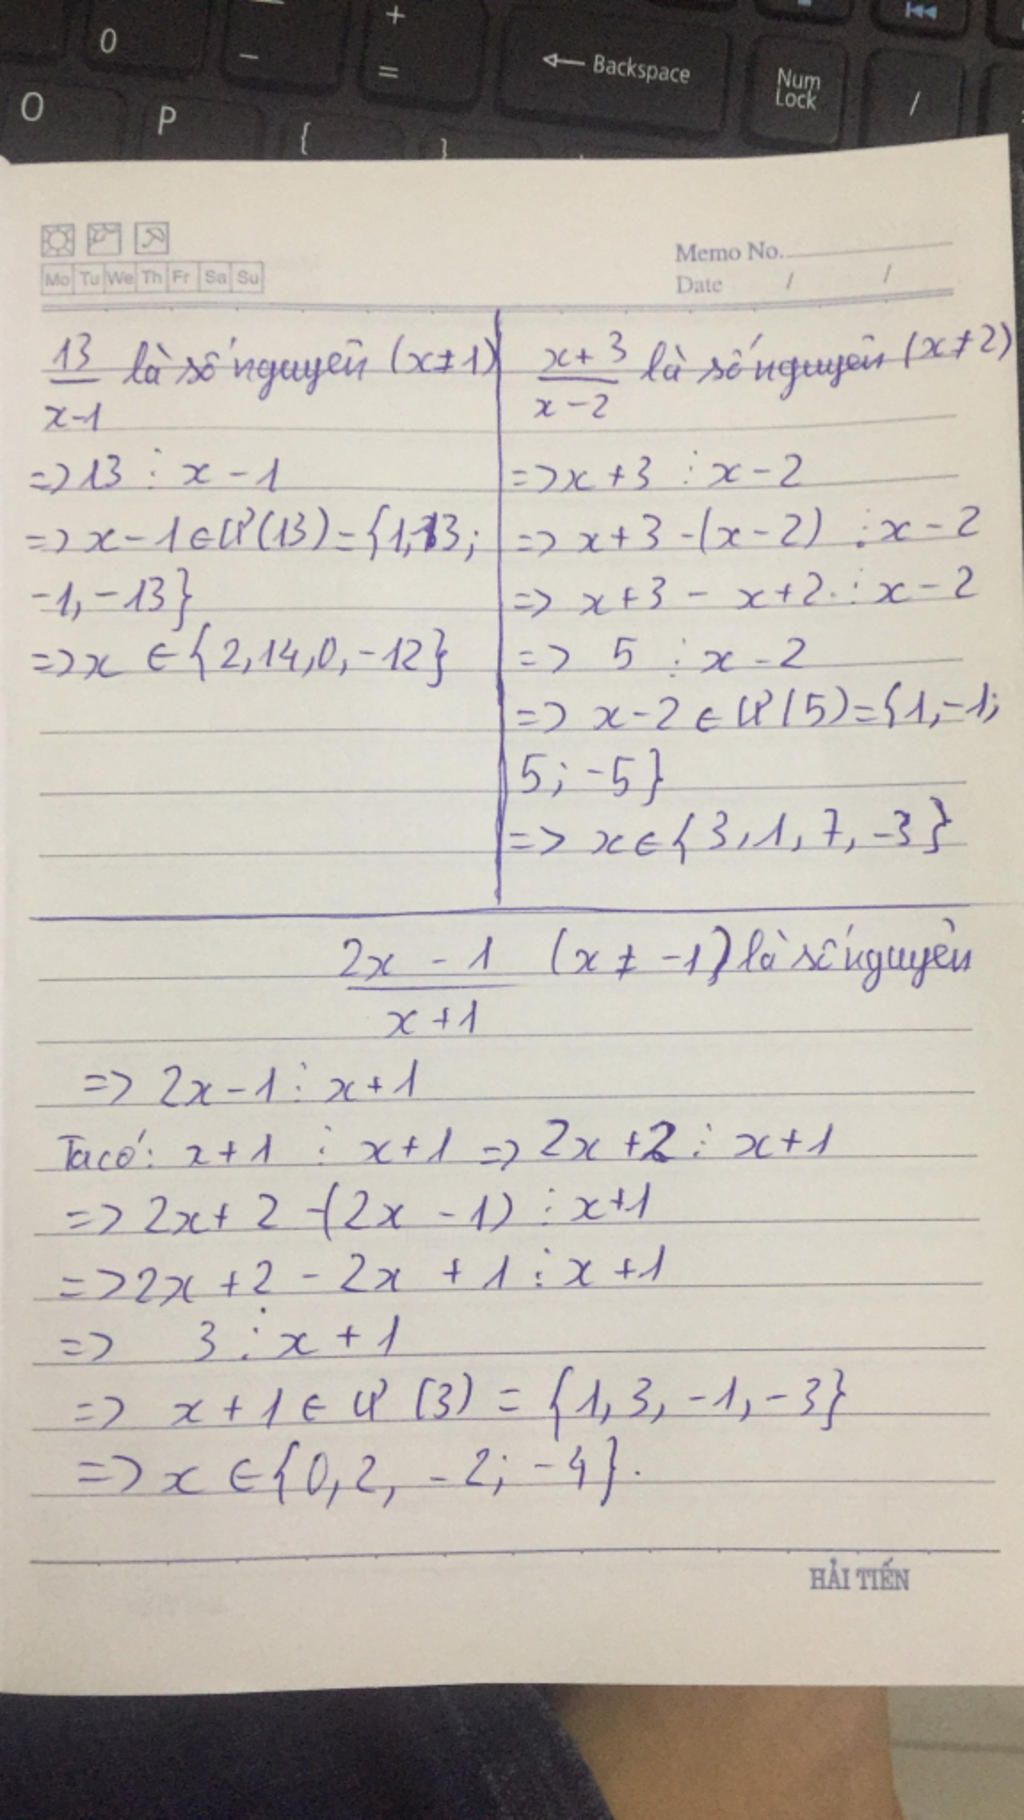 0
−
+
=
Backspace
Num
Lock
/
O
P
{
}
Mo Tu We Th Fr Sa Su
Memo No.
Date / /
13/x-1 là số nguyên (x≠1)
=> 13 ⋮ x - 1
=> x-1 ∈ Ư(13) = {1,13;
-1, -13}
=> x ∈ {2,14,0,-12}
x+3/x-2 là số nguyên (x≠2)
=> x+3 ⋮ x-2
=> x+3 -(x-2) ⋮ x-2
=> x+3 - x+2 ⋮ x-2
=> 5 ⋮ x-2
=> x-2 ∈ Ư(5) = {1,-1;
5; -5}
=> x ∈ {3,1,7,-3}
2x - 1/x+1 (x ≠ -1) là số nguyên
=> 2x-1 ⋮ x+1
Ta có: x+1 ⋮ x+1 => 2x+2 ⋮ x+1
=> 2x+2 -(2x-1) ⋮ x+1
=> 2x+2 - 2x + 1 ⋮ x+1
=> 3 ⋮ x+1
=> x+1 ∈ Ư(3) = {1,3,-1,-3}
=> x ∈ {0,2,-2;-4}.
HẢI TIẾN